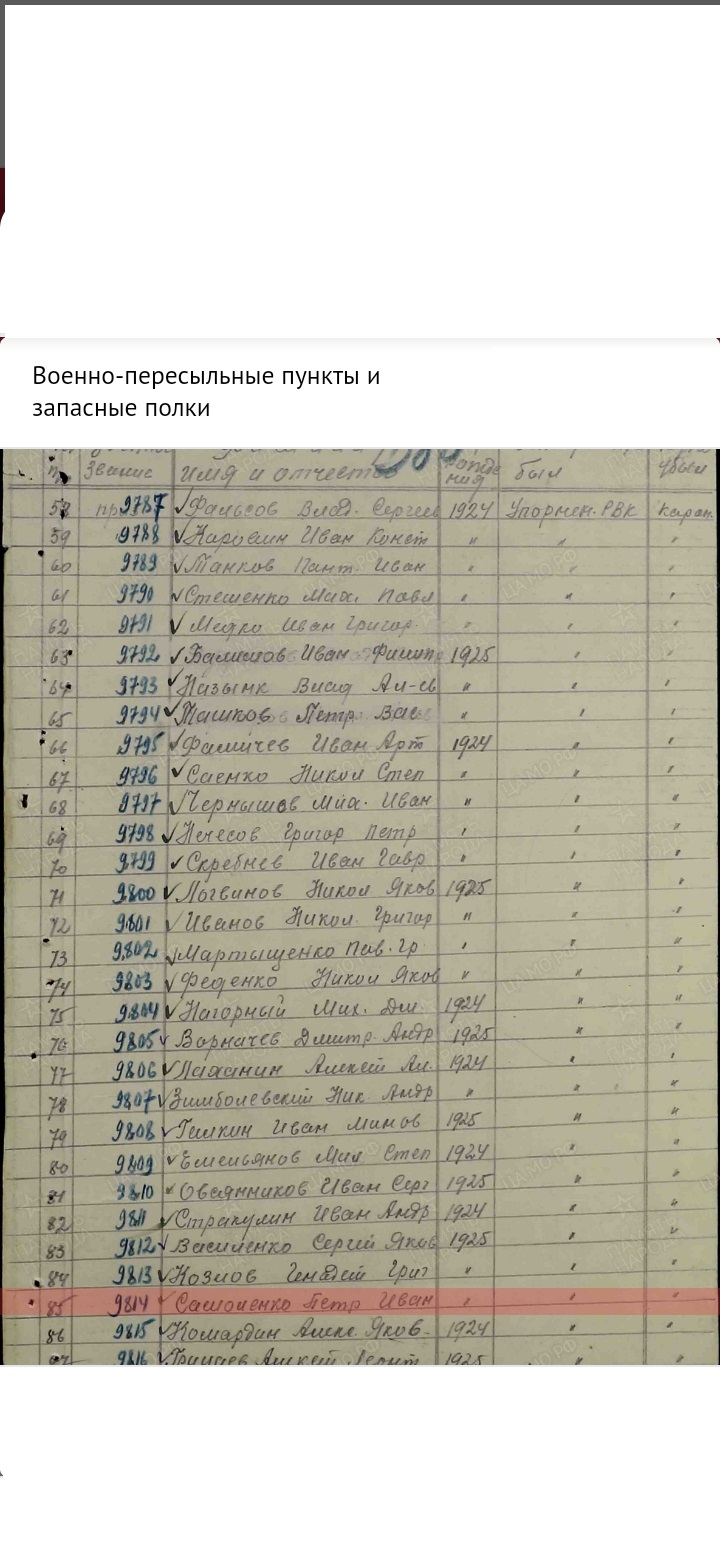 Военно-пересыльные пункты и
запасные полки
п Звание имя и отчество ния был убыл
58 9787 Фальсов Влад. Сергеев 1924 Упорнен. РВК каран.
59 9788 Иван Конст " " "
60 9789 Манков Пант. Иван " " "
61 9790 Стешенко Мих. Павл " " "
62 9791 Медко Иван Григор. " " "
63 9792 Иван Филип 1925 " "
64 9793 Ал-ев " " "
65 9794 Машков Петр Вас " " "
66 9795 Фаличев Иван Арт 1924 " "
67 9796 Саенко Никол Степ " " "
68 9797 Чернышов Мих. Иван " " "
69 9798 Григор Петр " " "
70 9799 Скребнев Иван Гавр " " "
71 9800 Логвинов Никол Яков 1925 " "
72 9801 Иванов Никол. Григор " " "
73 9802 Мартыщенко Пав. Гр " " "
74 9803 Феденко Никол Яков " " "
75 9804 Нагорный Мих. Дм. 1924 " "
76 9805 Ворначев Дмитр. Андр 1925 " "
77 9806 Алексей Ал. 1924 " "
78 9807 Зимболевский Ник. Андр " " "
79 9808 Галкин Иван 1925 " "
80 9809 Емельянов Мих Степ 1924 " "
81 9810 Овсянников Иван Серг 1925 " "
82 9811 Стракулин Иван Андр 1924 " "
83 9812 Василенко Сергей Яков 1925 " "
84 9813 Козлов Генадей Григ " " "
85 9814 Самоленко Петр Иван " " "
86 9815 Комардин Алекс. Яков. 1924 " "
9816 Алексей 1925 " "